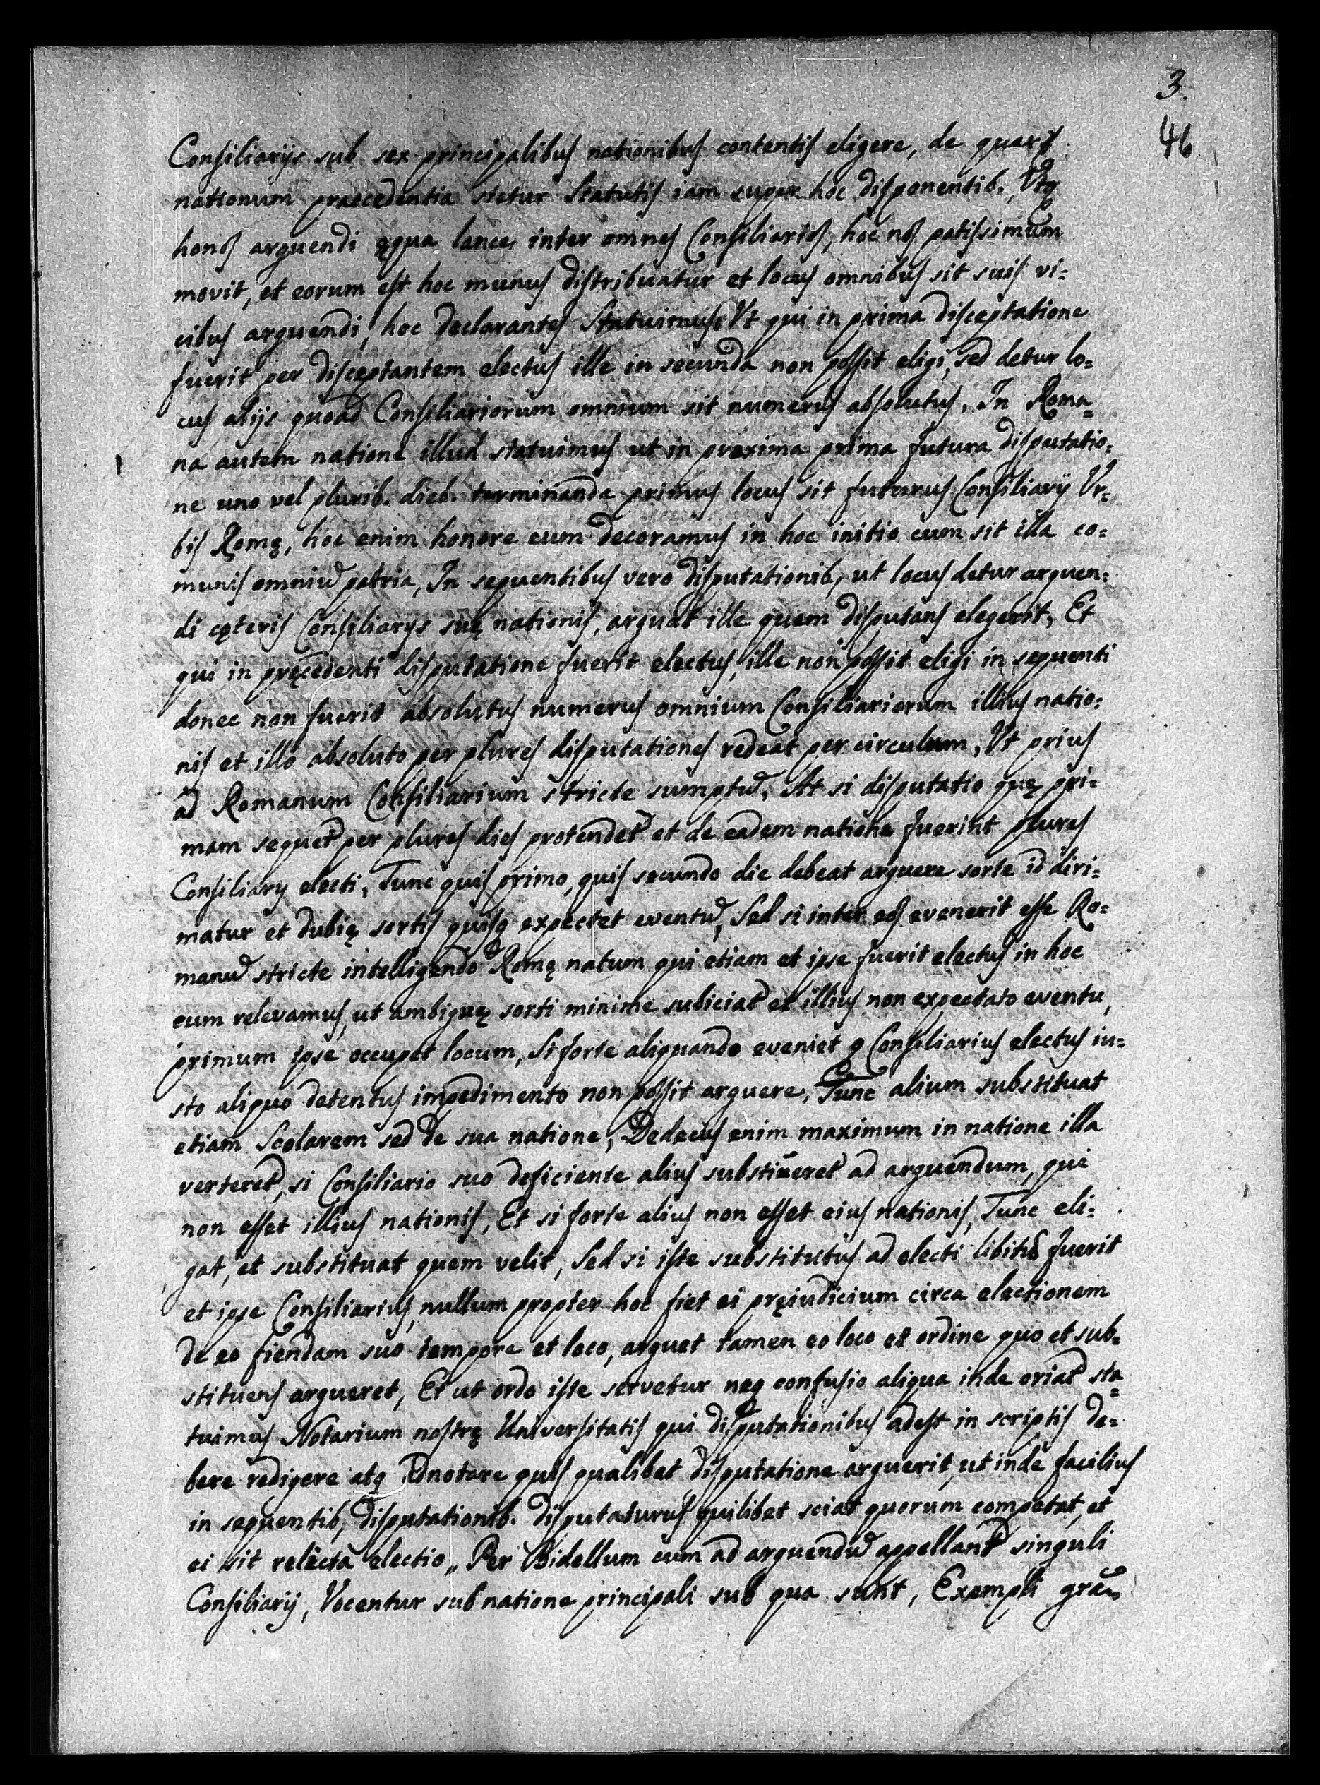 3.
46
Consiliarijs sub sex principalibus nationibus contentis eligere, de quarũ
nationum praecedentia stetur Statutis iam super hoc disponentib., Utq
honos arguendi ęqua lance, inter omnes Consiliarios, hoc nos potissimum
movit, et eorum est hoc munus distribuatur et locus omnibus sit suis vi=
cibus arguendi, hoc declarantes Statuimus Ut qui in prima disceptatione
fuerit per disceptantem electus ille in secunda non possit eligi, sed detur lo=
cus alijs quoad Consiliariorum omnium sit numerus absolutus, In Roma=
na autem natione illud statuimus ut in proxima prima futura disputatio=
ne uno vel plurib. dieb. terminanda primus locus sit futurus Consiliarij Ur=
bis Romę, hoc enim honore eum decoramus in hoc initio cum sit illa co=
munis omniũ patria, In sequentibus vero disputationib, ut locus detur arguen=
di cęteris Consiliarijs suę nationis, arguat ille quem disputans elegerit, Et
qui in pręcedenti disputatione fuerit electus, ille non possit eligi in sequenti
donec non fuerit absolutus numerus omnium Consiliariorum illius natio=
nis et illo absoluto per plures disputationes redeat per circulum, Ut prius
ad Romanum Consiliarium stricte sumptũ, At si disputatio quę pri=
mam sequet̃ per plures dies protendet̃ et de eadem natione fuerint plures
Consiliarij electi, Tunc quis primo, quis secundo die debeat arguere sorte id diri=
matur et dubię sortis quisq expectet eventũ, Sed si inter eos evenerit esse Ro=
manũ stricte intelligendo Romę natum qui etiam et ipse fuerit electus in hoc
eum relevamus, ut ambiguę sorti minime subiciat̃ et illius non expectato eventu,
primum ipse occupet locum, Si forte aliquando eveniet q Consiliarius electus iu=
sto aliquo detentus impedimento non possit arguere, Tunc alium substituat
etiam Scolarem sed de sua natione, Dedecus enim maximum in natione illa
verteret̃, si Consiliario suo deficiente alius substitueret̃ ad arguendum, qui
non esset illius nationis, Et si forte alius non esset eius nationis, Tunc eli=
gat, et substituat quem velit, Sed si iste substitutus ad electi libitũ fuerit
et ipse Consiliarius, nullum propter hoc fiet ei pręiudicium circa electionem
de eo fiendam suo tempore et loco, arguet tamen eo loco et ordine quo et sub=
stituens argueret, Et ut ordo iste servetur neq confusio aliqua inde oriat̃ sta=
tuimus Notarium nostrę Universitatis qui disputationibus adest in scriptis de=
bere redigere atq adnotare quis qualibet disputatione arguerit, ut inde facilius
in sequentib, disputationib. disputaturus quilibet sciat quorum competat, et
ei sit relecta electio, Per Bidellum cum ad arguendũ appellant̃ singuli
Consiliarij, Vocentur sub natione principali sub qua sunt, Exempli grã